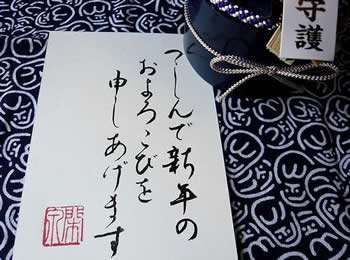 つしんで新年の
およろこびを
申しあげます
守護